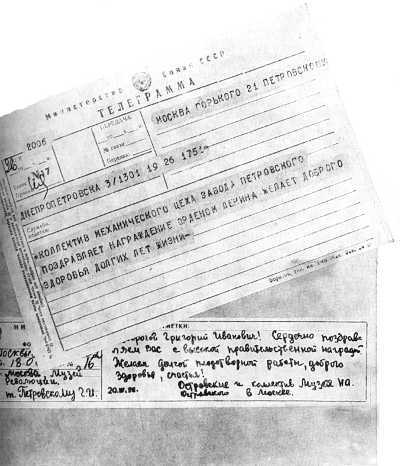 Министерство Связи СССР
ТЕЛЕГРАММА
2006
ПЕРЕДАЧА
МОСКВА ГОРЬКОГО 21 ПЕТРОВСКОМУ
ДНЕПРОПЕТРОВСКА 3/1301 19 26 1751=
=КОЛЛЕКТИВ МЕХАНИЧЕСКОГО ЦЕХА ЗАВОДА ПЕТРОВСКОГО
ПОЗДРАВЛЯЕТ НАГРАЖДЕНИЕ ОРДЕНОМ ЛЕНИНА ЖЕЛАЕТ ДОБРОГО
ЗДОРОВЬЯ ДОЛГИХ ЛЕТ ЖИЗНИ-
Москва Музей
Революции
т. Петровскому Г.И.
Дорогой Григорий Иванович! Сердечно поздрав-
ляем Вас с высокой правительственной наградой
Желаем долгой плодотворной работы, доброго
здоровья, счастья!
Островские и коллектив Музея Н.А.
Островского в Москве.